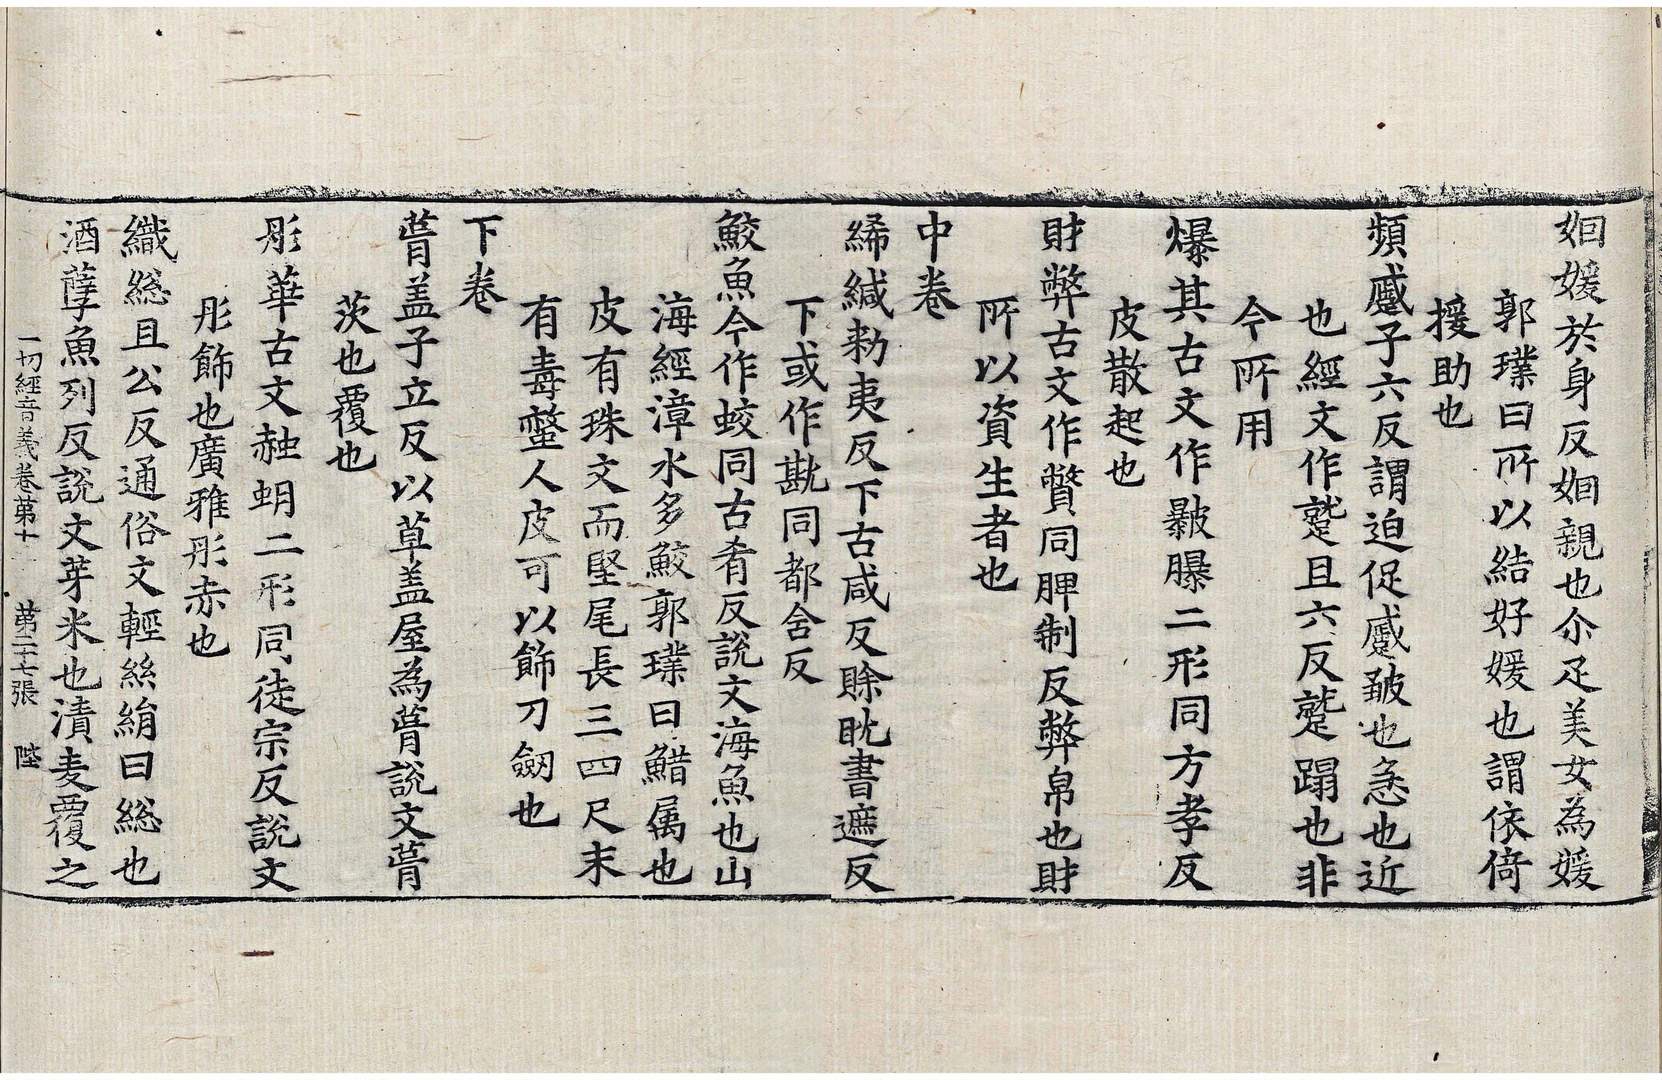 姻媛於身反姻親也尒疋美女為媛
郭璞曰所以結好媛也謂依倚
援助也
頻蹙子六反謂迫促蹙皺也急也近
也經文作蹵且六反蹵蹋也非
今所用
爆其古文作㿺曝二形同方孝反
皮散起也
財弊古文作䘷同脾制反弊帛也財
所以資生者也
中卷
絺緘勑夷反下古咸反賖眈書遮反
下或作妉同都含反
鮫魚今作蛟同古肴反說文海魚也山
海經漳水多鮫郭璞曰䱜属也
皮有珠文而堅尾長三四尺末
有毒螫人皮可以飾刀劒也
下卷
葺盖子立反以草盖屋為葺說文葺
茨也覆也
彤華古文赨蚒二形同徒宗反說文
彤飾也廣雅彤赤也
織総且公反通俗文輕絲絹曰総也
酒孽魚列反說文芽米也漬麦覆之
一切經音義卷苐十 苐二十七張 陛